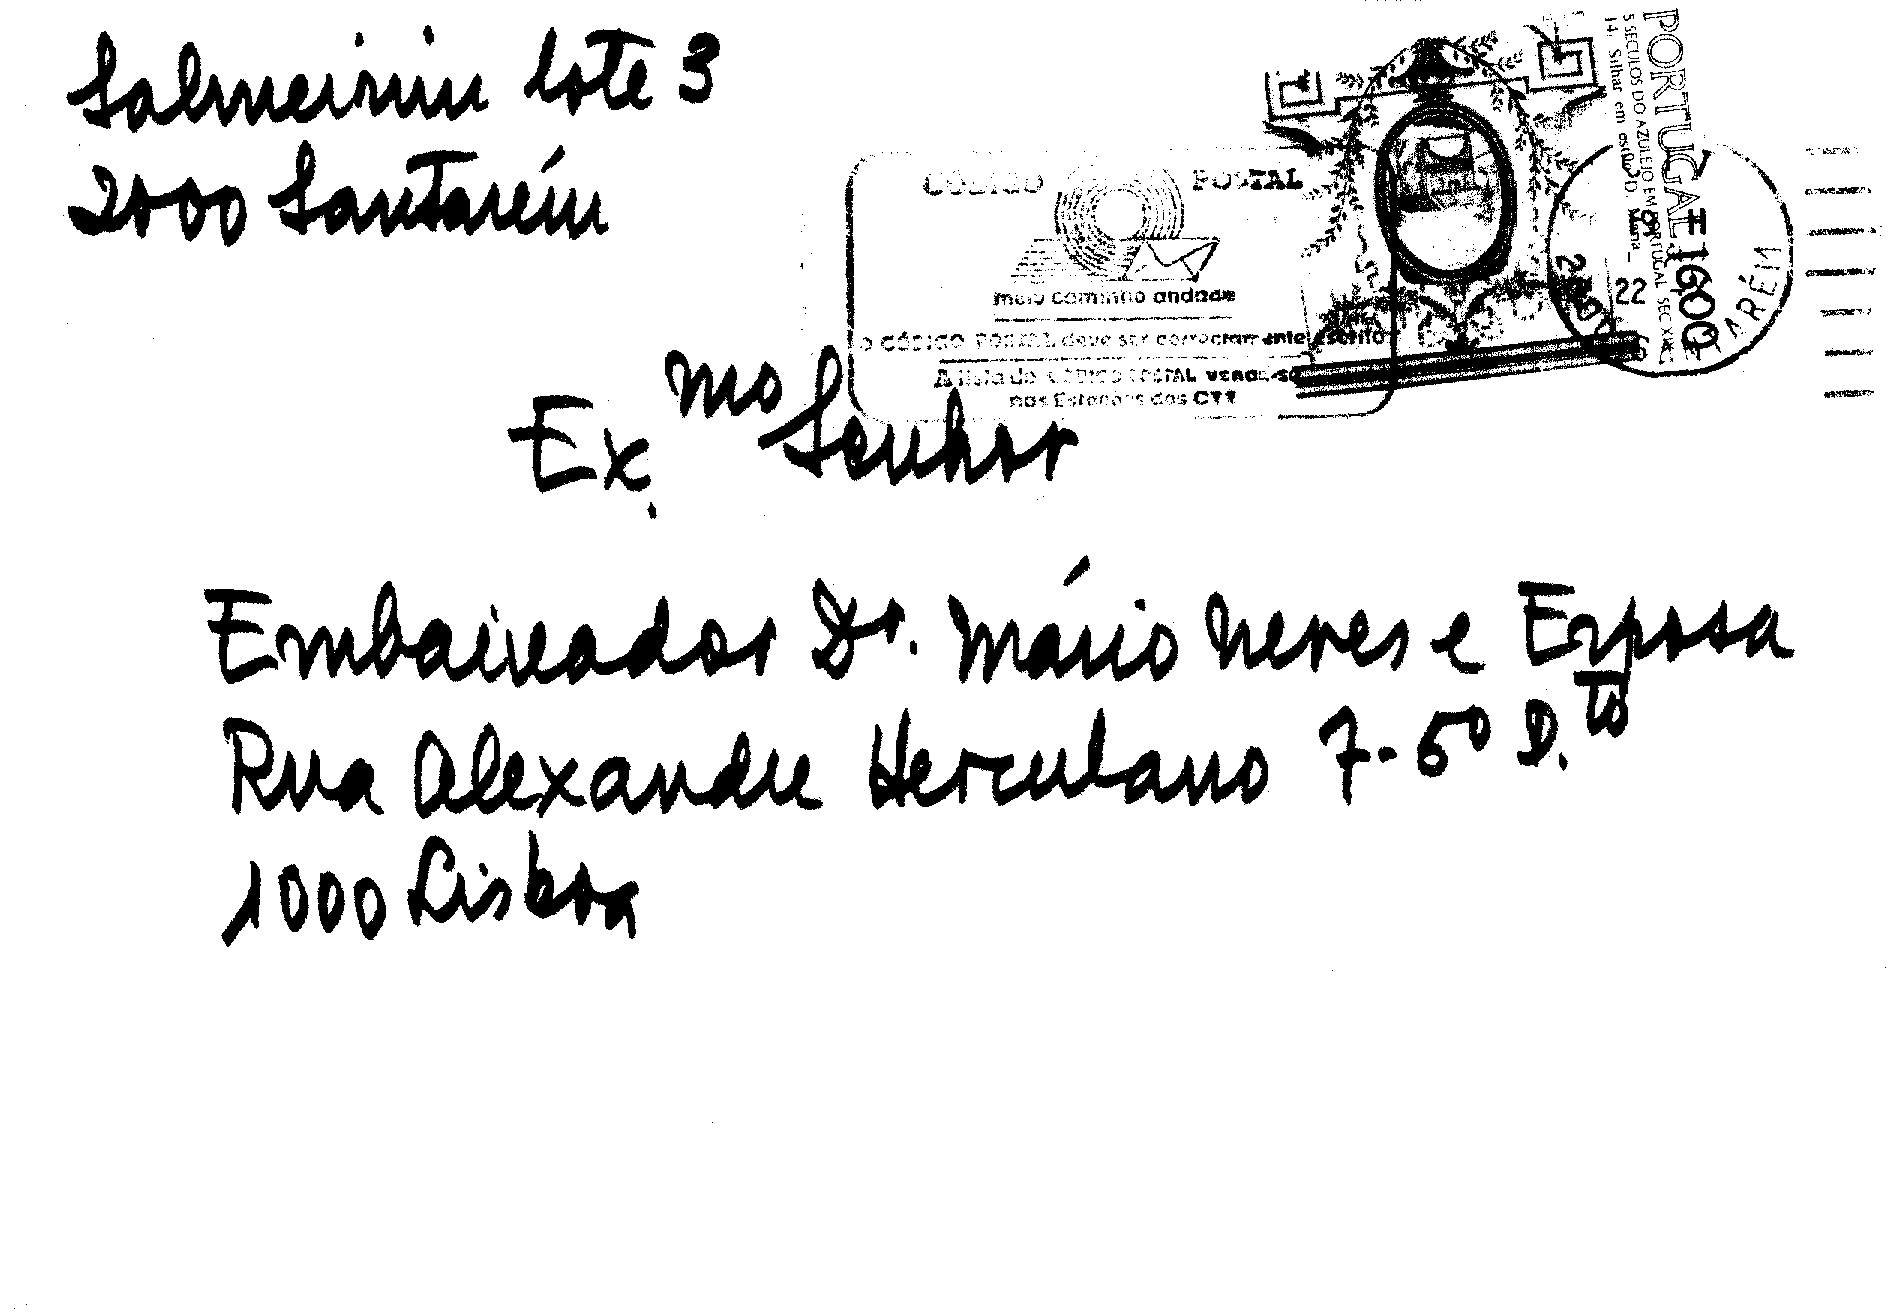 Salmeirim lote 3
2000 Santarém
CÓDIGO POSTAL
meio caminho andado
O CÓDIGO POSTAL deve ser correctamente escrito
nas Estações dos CTT
PORTUGAL 1600
5 SECULOS DO AZULEJO EM PORTUGAL SEC XIX
14. Silhar em
22
2000 SANTARÉM
Ex.mo Senhor
Embaixador Dr. Mário Neves e Esposa
Rua Alexandre Herculano 7-5º D.to
1000 Lisboa